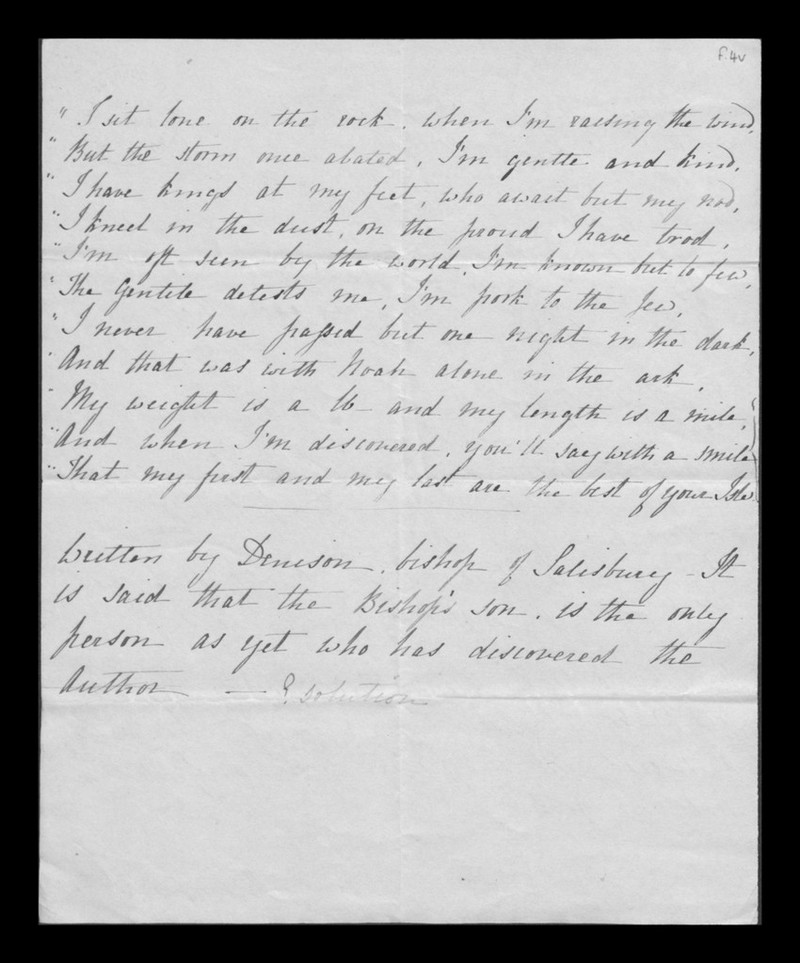 f.4v
" I sit lone on the rock. when I'm raising the wind,
" But the storm once abated, I'm gentle and kind.
" I have kings at my feet, who await but my nod,
" I kneel in the dust, on the proud I have trod,
" I'm oft seen by the world, I'm known but to few,
" The Gentile detests me, I'm pork to the Jew,
" I never have passed but one night in the dark,
" And that was with Noah alone in the ark,
" My weight is a lb and my length is a mile,
" And when I'm discovered, you'll say with a smile
" That my first and my last are the best of your Isle
Written by Denison, bishop of Salisbury - It
is said that the Bishop's son. is the only
person as yet who has discovered the
Author — ? solution